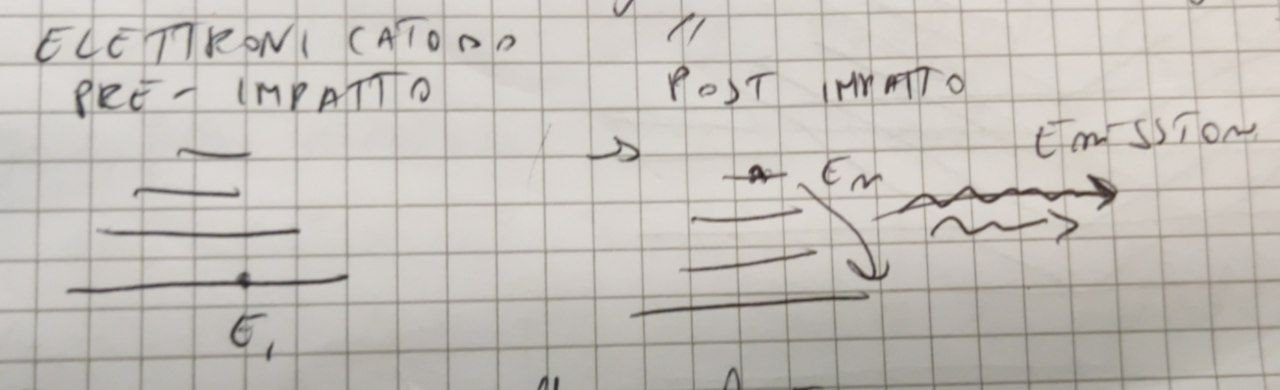 ELETTRONI CATODO "
PRE- IMPATTO
POST IMPATTO
EMISSION
En
E1